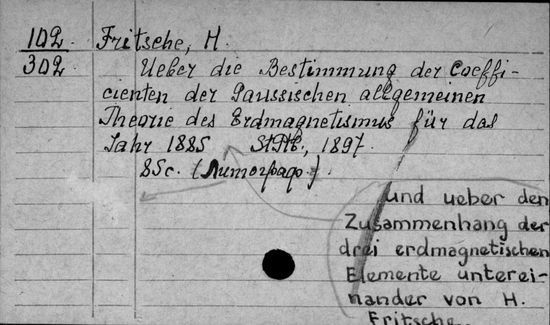 102
302
Fritsche, H.
Ueber die Bestimmung der Coeffi-
cienten der Gaussischen allgemeinen
Theorie des Erdmagnetismus für das
Jahr 1885 StPtb., 1897.
85c. (Литограф.)
und ueber den
Zusammenhang der
drei erdmagnetischen
Elemente unterei-
nander von H.
Fritsche